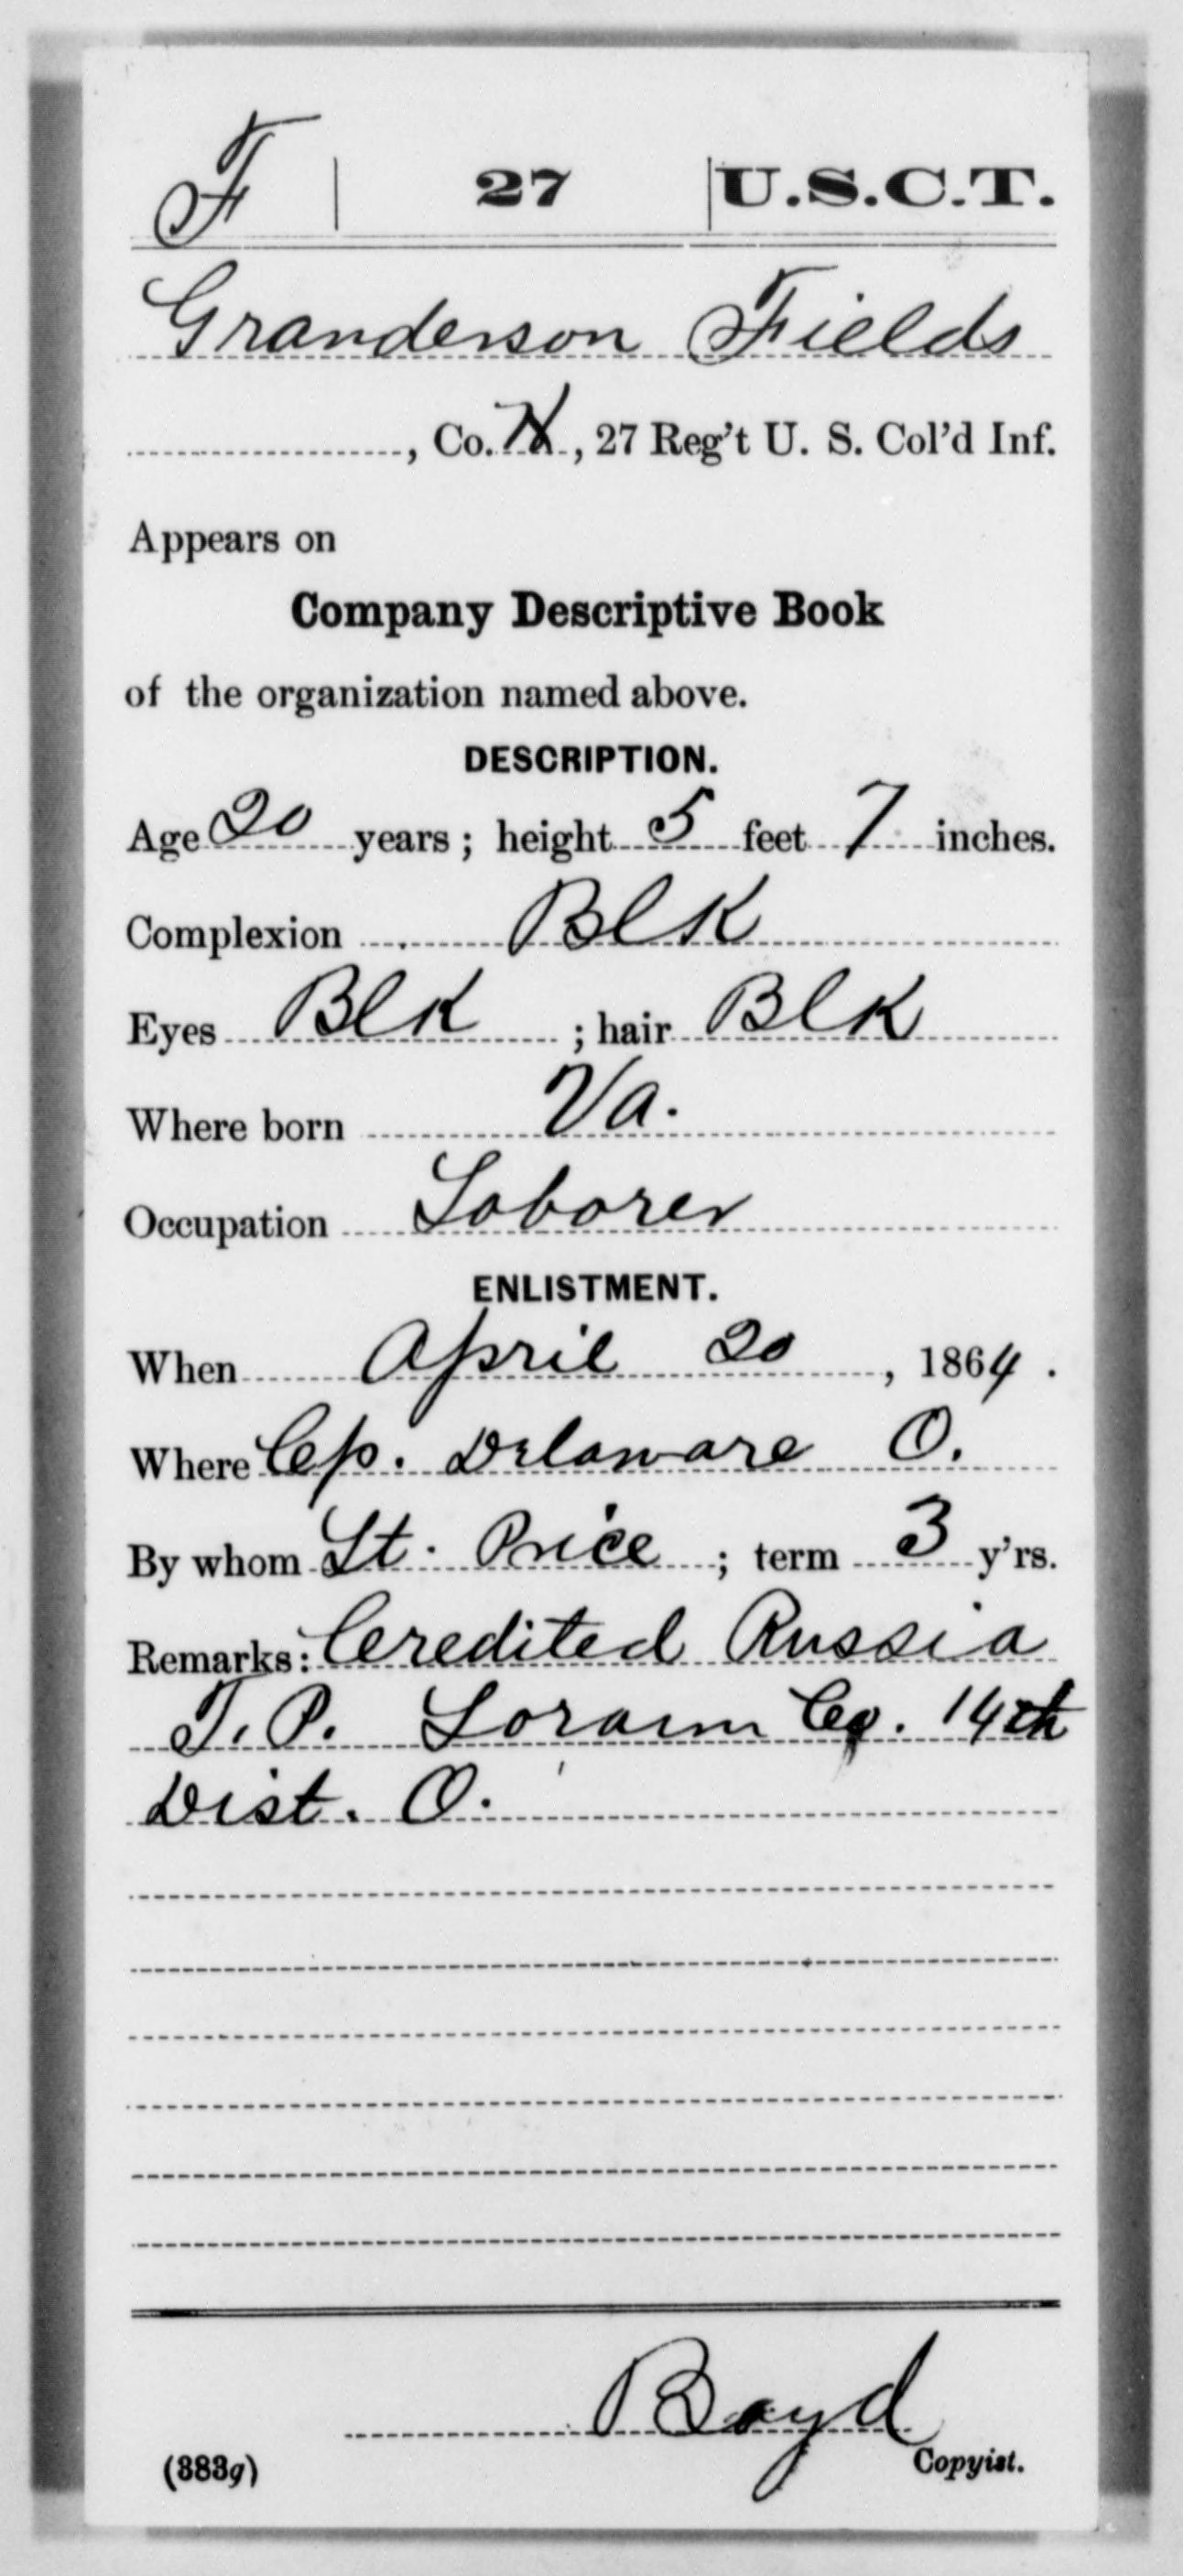 F | 27 | U.S.C.T.
Granderson Fields
, Co. H, 27 Reg't U. S. Col'd Inf.
Appears on
Company Descriptive Book
of the organization named above.
DESCRIPTION.
Age 20 years; height 5 feet 7 inches.
Complexion Blk
Eyes Blk; hair Blk
Where born Va.
Occupation Laborer
ENLISTMENT.
When April 20, 1864.
Where Cp. Delaware O.
By whom Lt. Price; term 3 y'rs.
Remarks: Credited Russia
T. P. Lorain Co. 14th
Dist. O.
Boyd
Copyist.
(383g)